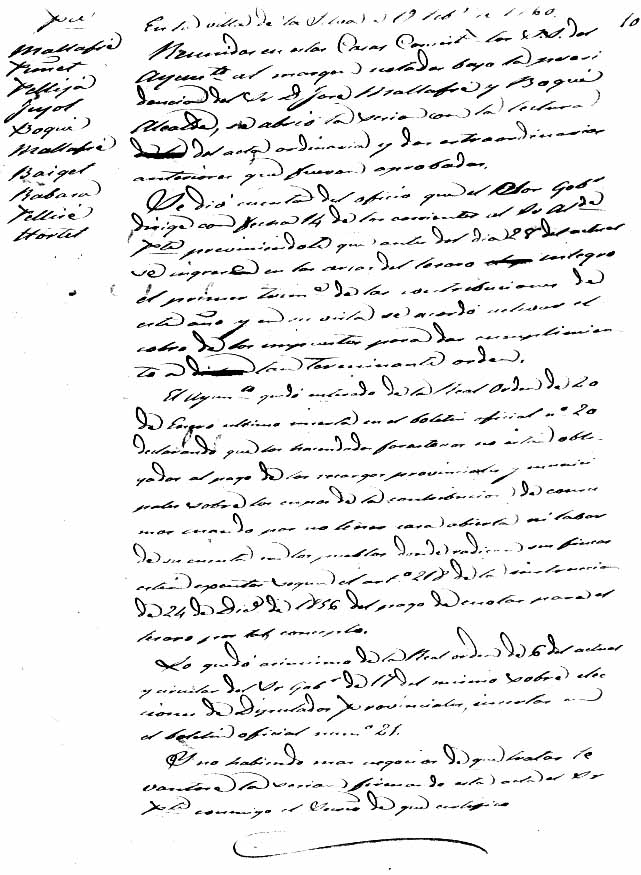 10
En la villa de la Selva a 19 Feb.º de 1860.
Mallafré
Pellejà
Pujol
Boqué
Mallafré
Baiget
Rabasa
Pellicé
Hortet
Reunidos en estas Casas Consist.s los S.S. del
Ayunt.º al margen notados bajo la presi
dencia del Sr D. José Mallafré y Boqué
Alcalde, se abrió la sesion con la lectura
del acta ordinaria y dos extraordinarias
anteriores que fueron aprobadas.
Se dió cuenta del oficio que el Sor Gob.r
dirige con fecha 14 de los corrientes al Sr Alde
Pte previniendole que antes del dia 28 del actual
se ingrese en las arcas del tesoro integro
el primer trim.e de las contribuciones de
este año y en su vista se acordó activar el
cobro de los impuestos para dar cumplimien
to a tan terminante orden.
El Ayun.º quedó enterado de la Real Orden de 20
de Enero ultimo inserta en el boletin oficial nº 20
declarando que los hacendados forasteros no están obli-
gados al pago de los recargos provinciales y munici
pales sobre los cupos de la contribucion de consu
mos cuando por no tener casa abierta ni labor
de su cuenta en los pueblos donde radican sus fincas
estén exentos segun el artº 218 de la instruccion
de 24 de Dic.e de 1856 del pago de cuotas para el
tesoro por tal concepto.
Lo quedó asimismo de la Real orden de 6 del actual
y circular del Sr Gob.r de 1º del mismo sobre elec
ciones de Diputados Provinciales, insertas en
el boletin oficial num.º 21.
Y no habiendo mas negocios de que tratar se
levantó la sesion firmando esta acta el Sr
Pte conmigo el Secrio de que certifico